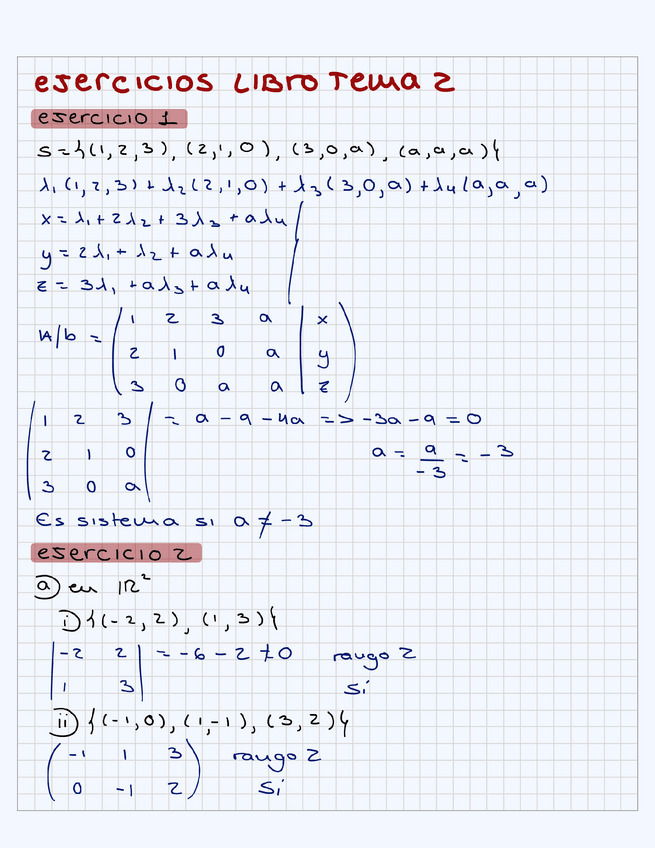 EJERCICIOS LIBRO TEMA 2
EJERCICIO 1
S = {(1,2,3), (2,1,0), (3,0,a), (a,a,a)}
λ₁(1,2,3) + λ₂(2,1,0) + λ₃(3,0,a) + λ₄(a,a,a)
x = λ₁ + 2λ₂ + 3λ₃ + aλ₄
y = 2λ₁ + λ₂ + aλ₄
z = 3λ₁ + aλ₃ + aλ₄
A/b = ( 1 2 3 a | x )
2 1 0 a | y
3 0 a a | z
| 1 2 3 | = a - 9 - 4a => -3a - 9 = 0
2 1 0 a = 9/-3 = -3
3 0 a
Es sistema si a ≠ -3
EJERCICIO 2
a) en ℝ²
i) {(-2,2), (1,3)}
| -2 2 | = -6 - 2 ≠ 0 rango 2
1 3 sí
ii) {(-1,0), (1,-1), (3,2)}
( -1 1 3 ) rango 2
0 -1 2 sí